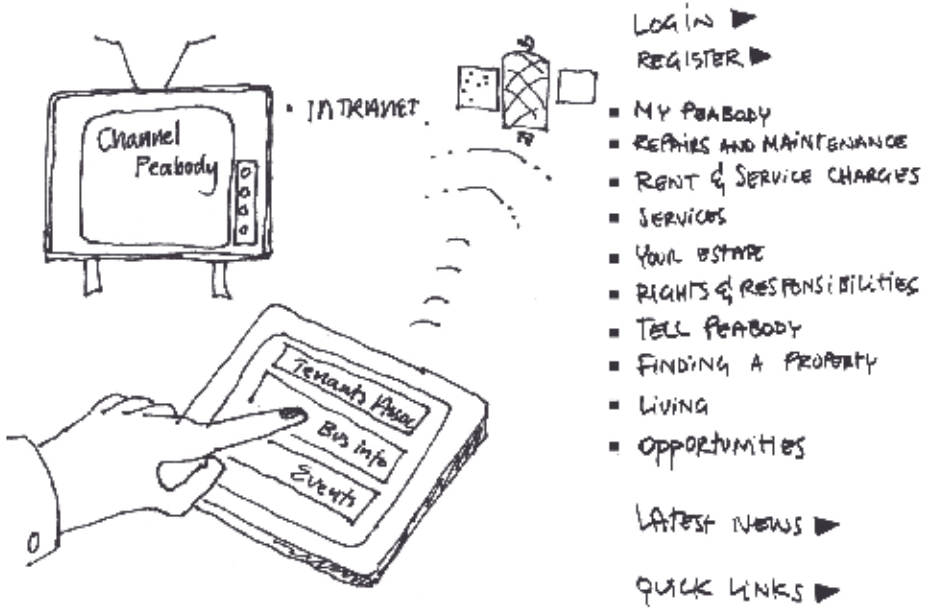 Channel
Peabody
• INTRANET
Tenants Assoc
Bus info
Events
LOGIN ▶
REGISTER ▶
▪ MY PEABODY
▪ REPAIRS AND MAINTENANCE
▪ RENT & SERVICE CHARGES
▪ SERVICES
▪ YOUR ESTATE
▪ RIGHTS & RESPONSIBILITIES
▪ TELL PEABODY
▪ FINDING A PROPERTY
▪ LIVING
▪ OPPORTUNITIES
LATEST NEWS ▶
QUICK LINKS ▶